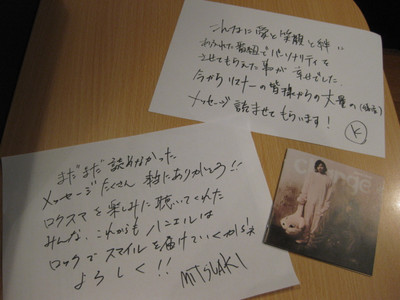 こんなに愛と笑顔と絆に
あふれた番組でパーソナリティを
させてもらえた事が幸せでした。
今からリスナーの皆様からの大量の
メッセージ読ませてもらいます！
K
まだまだ読めなかった
メッセージたくさん 本当にありがとう!!
ロクスマを楽しみに聴いてくれた
みんな、これからもハニエルは
ロックでスマイルを届けていくから!
よろしく!!
MITSUAKI
change